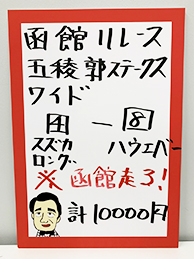 函館11レース
五稜郭ステークス
ワイド
田 — 図
スズカ ハウエバー
ロング
※函館走る!
計10000円